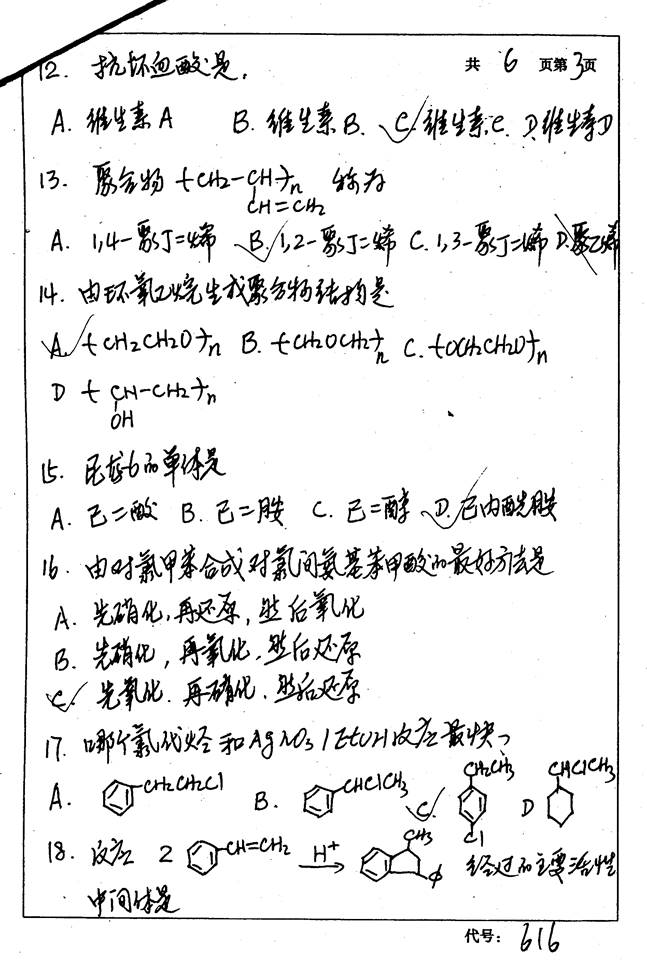 共 6 页第 3 页
12. 抗坏血酸是.
A. 维生素A B. 维生素B. C. 维生素C. D. 维生素D
13. 聚合物 +CH2-CH+n 称为
CH=CH2
A. 1,4-聚丁=烯 B. 1,2-聚丁=烯 C. 1,3-聚丁=烯 D. 聚乙烯
14. 由环氧乙烷生成聚合物结构是
A. +CH2CH2O+n B. +CH2OCH2+n C. +OCH2CH2O+n
D +CH-CH2+n
OH
15. 尼龙6的单体是
A. 己二酸 B. 己二胺 C. 己二醇 D. 己内酰胺
16. 由对氯甲苯合成对氯间氨基苯甲酸的最好方法是
A. 先硝化, 再还原, 然后氧化
B. 先硝化, 再氧化, 然后还原
C. 先氧化. 再硝化. 然后还原
17. 哪个氯代烃和AgNO3/EtOH反应最快?
A. CH2CH2Cl B. CHClCH3 C. CH2CH3 Cl D CHClCH3
18. 反应 2 CH=CH2 H+ CH3 φ 经过的主要活性
中间体是
代号: 616